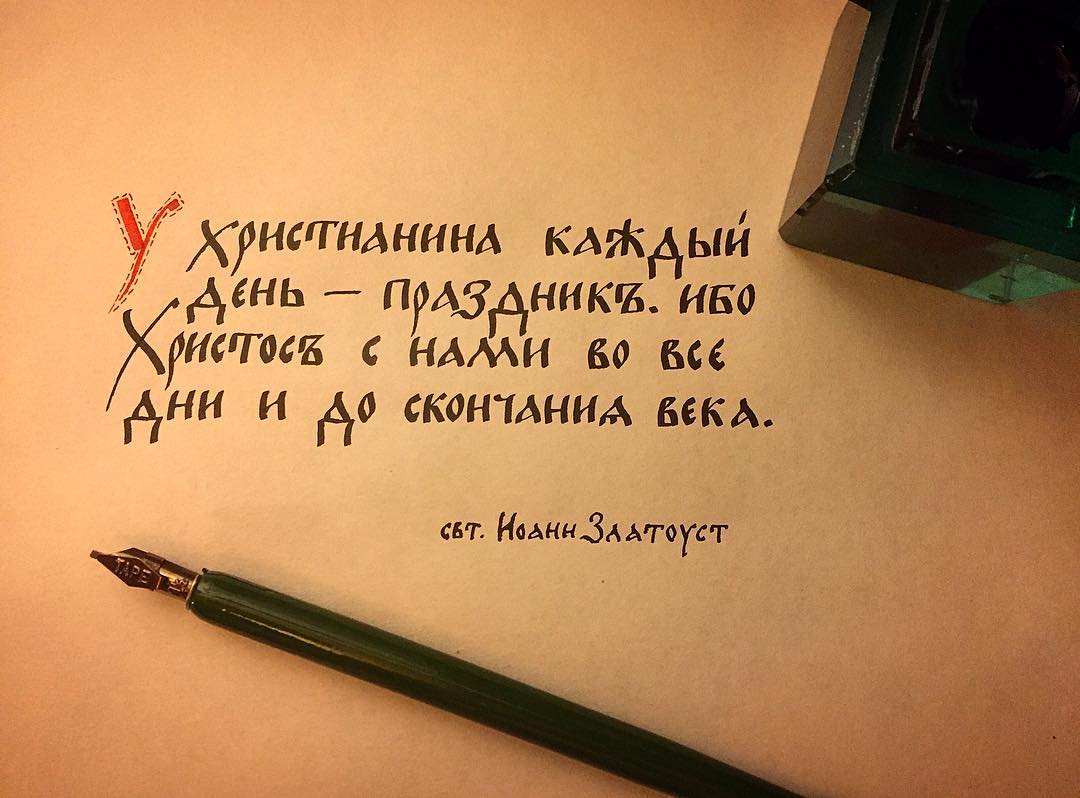 У христианина каждый
день — праздникъ. ибо
Христосъ с нами во все
дни и до скончания века.
свт. Иоанн Златоуст
TAPE